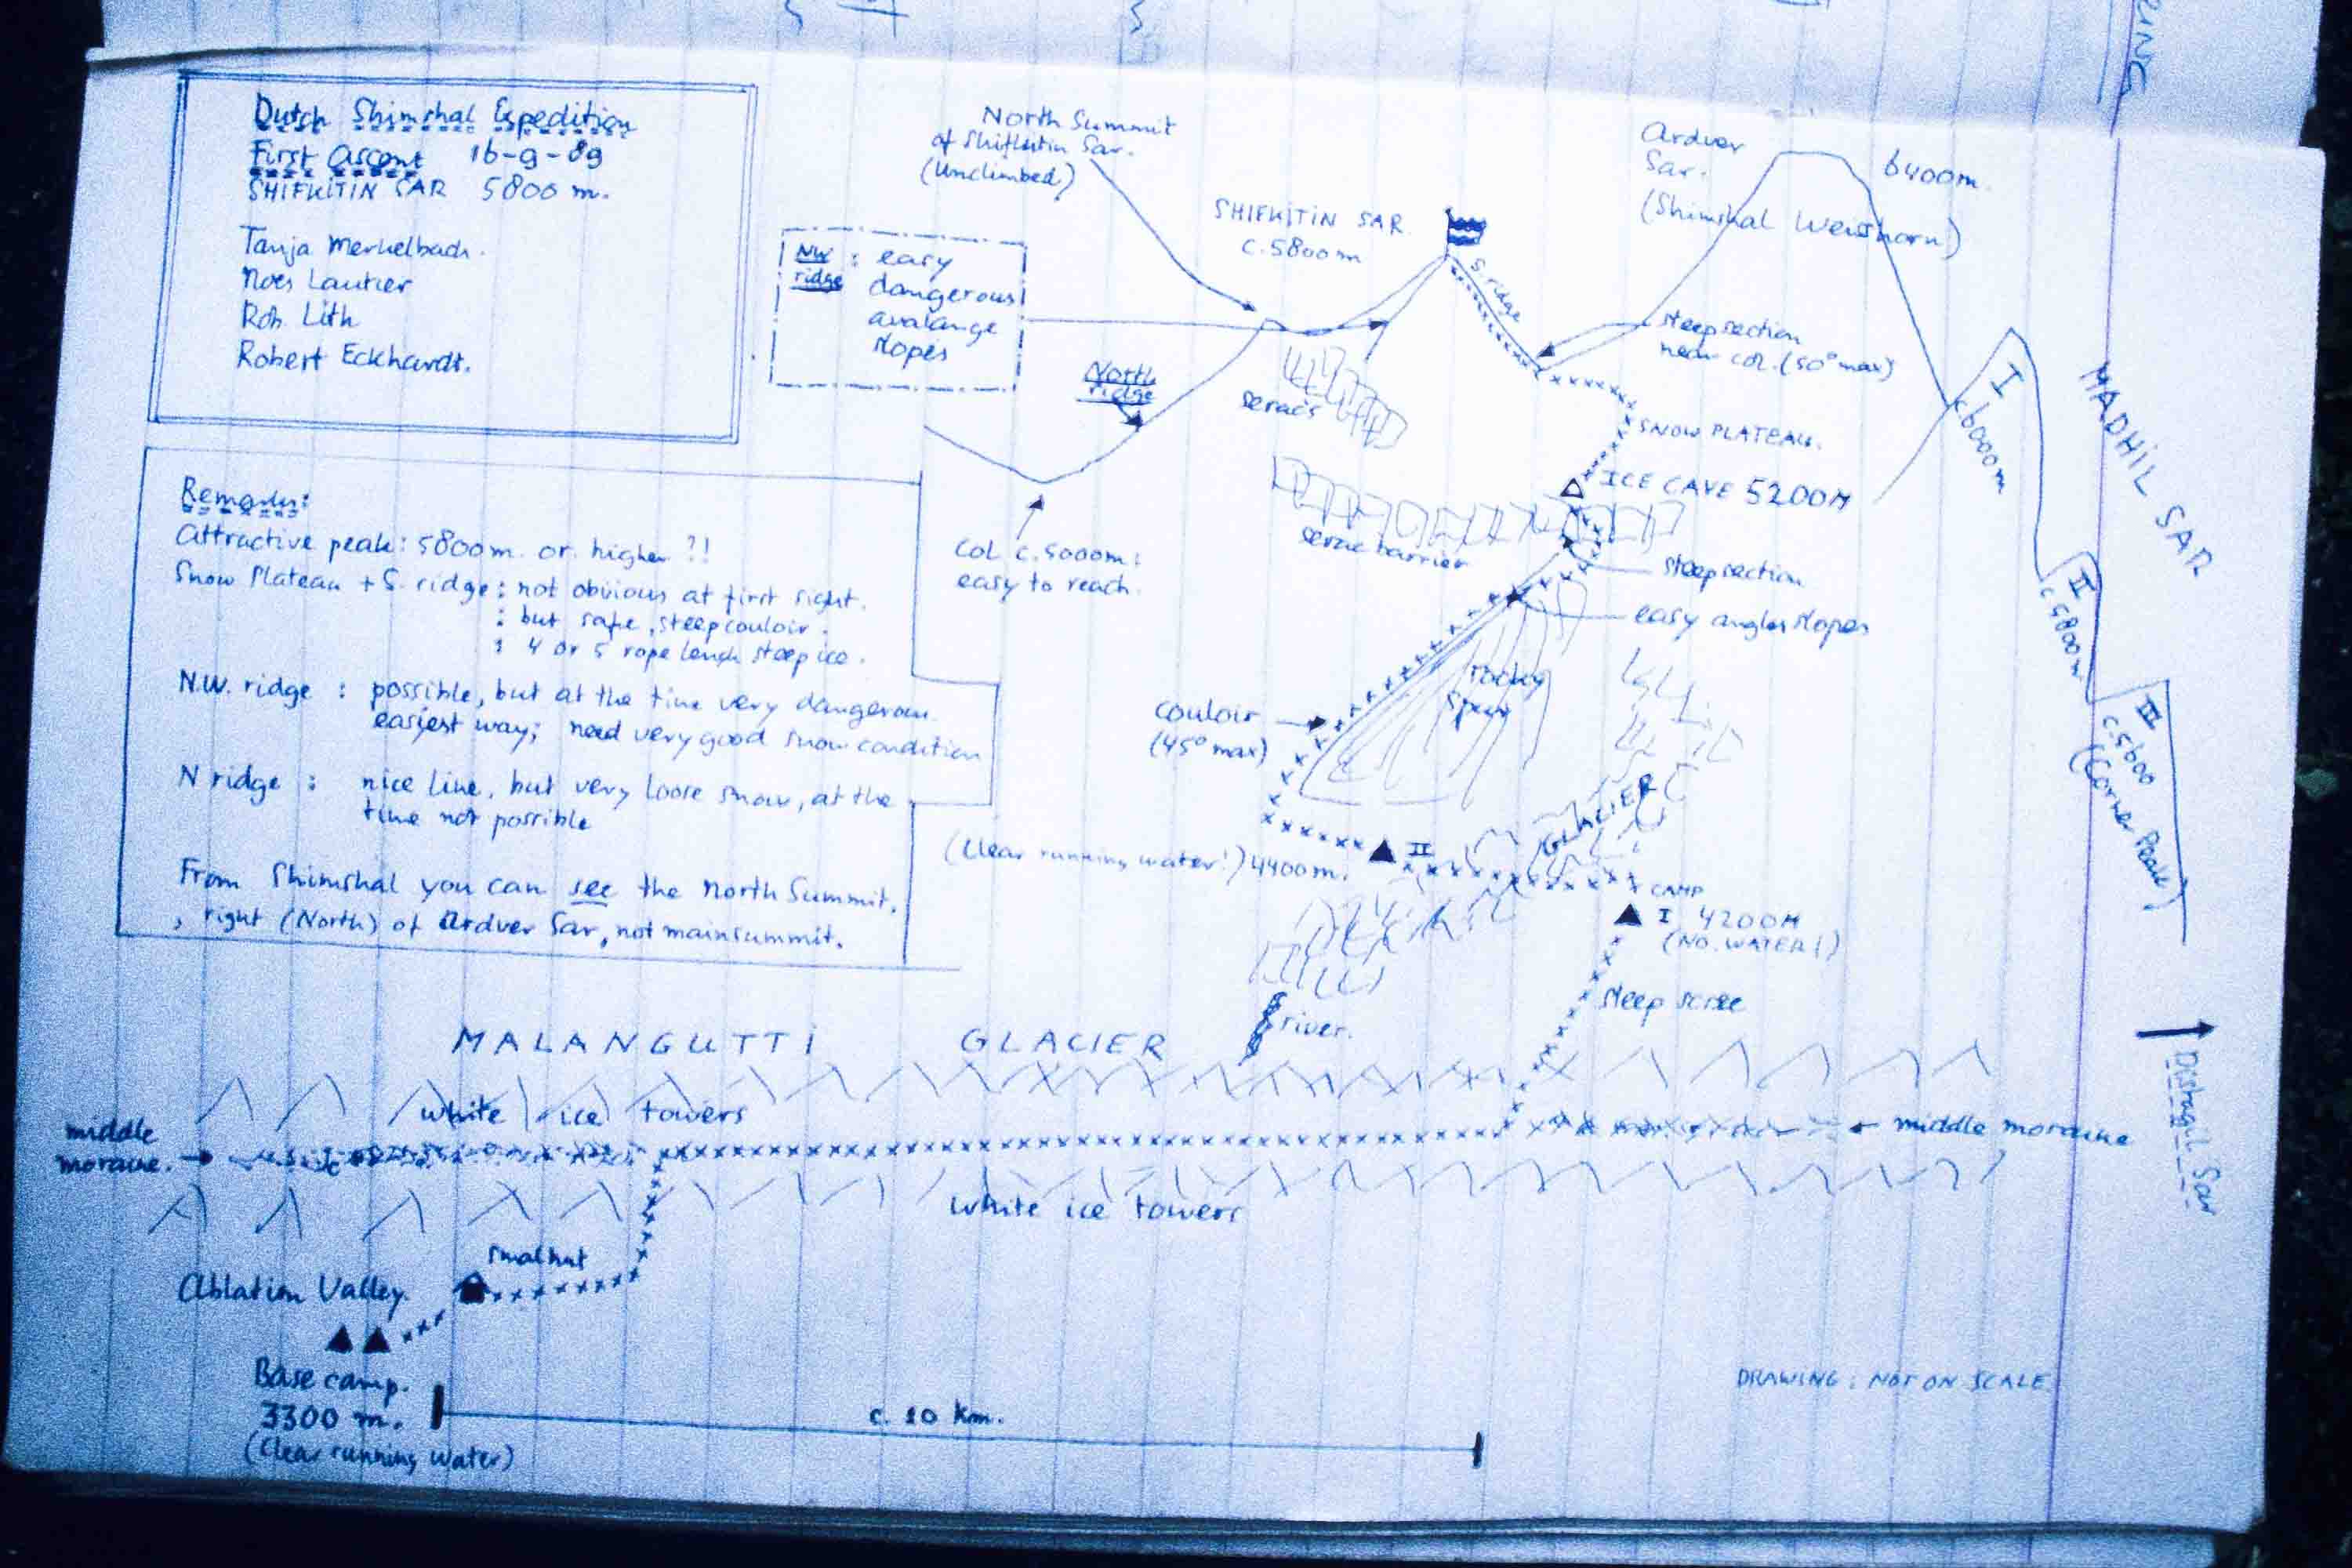 Dutch Shimshal Espedition
First Ascent 16-9-89
SHIFKITIN SAR 5800 m.
Tanja Merkelbach.
Noes Lautier
Rob. Lith
Robert Eckhardt.
Remarks:
Attractive peak: 5800m. or higher ?!
Snow Plateau + S. ridge : not obvious at first sight.
: but safe, steep couloir.
: 4 or 5 rope lengh steep ice.
N.W. ridge : possible, but at the time very dangerous
easiest way; need very good snow condition
N ridge : nice line, but very loose snow, at the
time not possible
From Shimshal you can see the north Summit,
, right (North) of Ardver Sar, not mainsummit.
NW : easy
ridge dangerous
avalange
slopes
North Summit
of Shifkitin Sar.
(Unclimbed)
North
ridge
Col c.5000m:
easy to reach.
SHIFKITIN SAR
c.5800m
S. ridge
seracs
Ardver
Sar.
(Shimshal Weisshorn)
6400m.
steep section
near col. (50° max)
SNOW PLATEAU.
ICE CAVE 5200M
serac barrier
steep section
easy angles slopes
rocky
spur
couloir
(45° max)
GLACIER
(Clear running water!) 4400m.
II
CAMP
I 4200M
(NO. WATER!)
steep scree
river.
I
c6000m
II
c5800m
III
c.5600
(Corner Peak)
MADHIL SAR
Distagil Sar
MALANGUTTI GLACIER
white ice towers
middle
moraine.
middle moraine
white ice towers
smal hut
Ablation Valley.
Base camp.
3300 m.
(Clear running water)
c. 10 km.
DRAWING: NOT ON SCALE